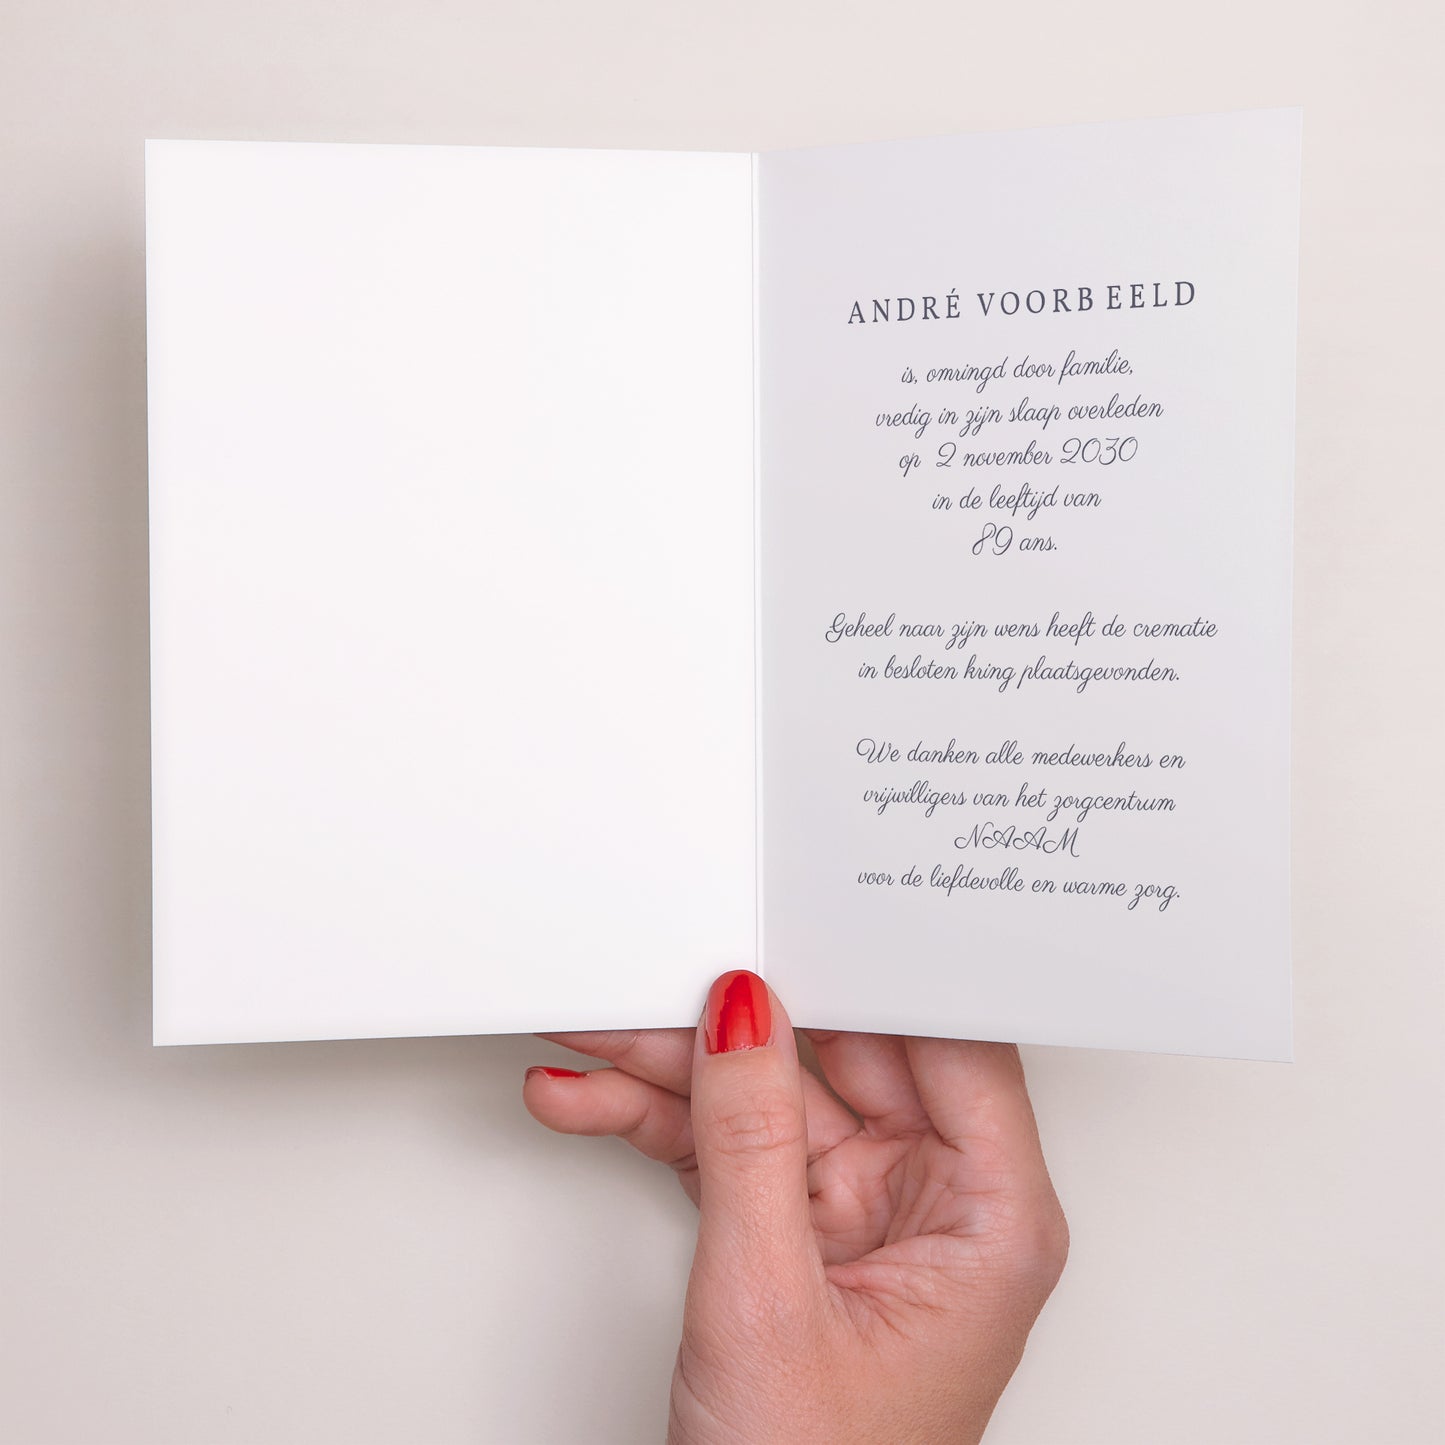 ANDRÉ VOORBEELD
is, omringd door familie,
vredig in zijn slaap overleden
op 2 november 2030
in de leeftijd van
89 ans.
Geheel naar zijn wens heeft de crematie
in besloten kring plaatsgevonden.
We danken alle medewerkers en
vrijwilligers van het zorgcentrum
NAAM
voor de liefdevolle en warme zorg.